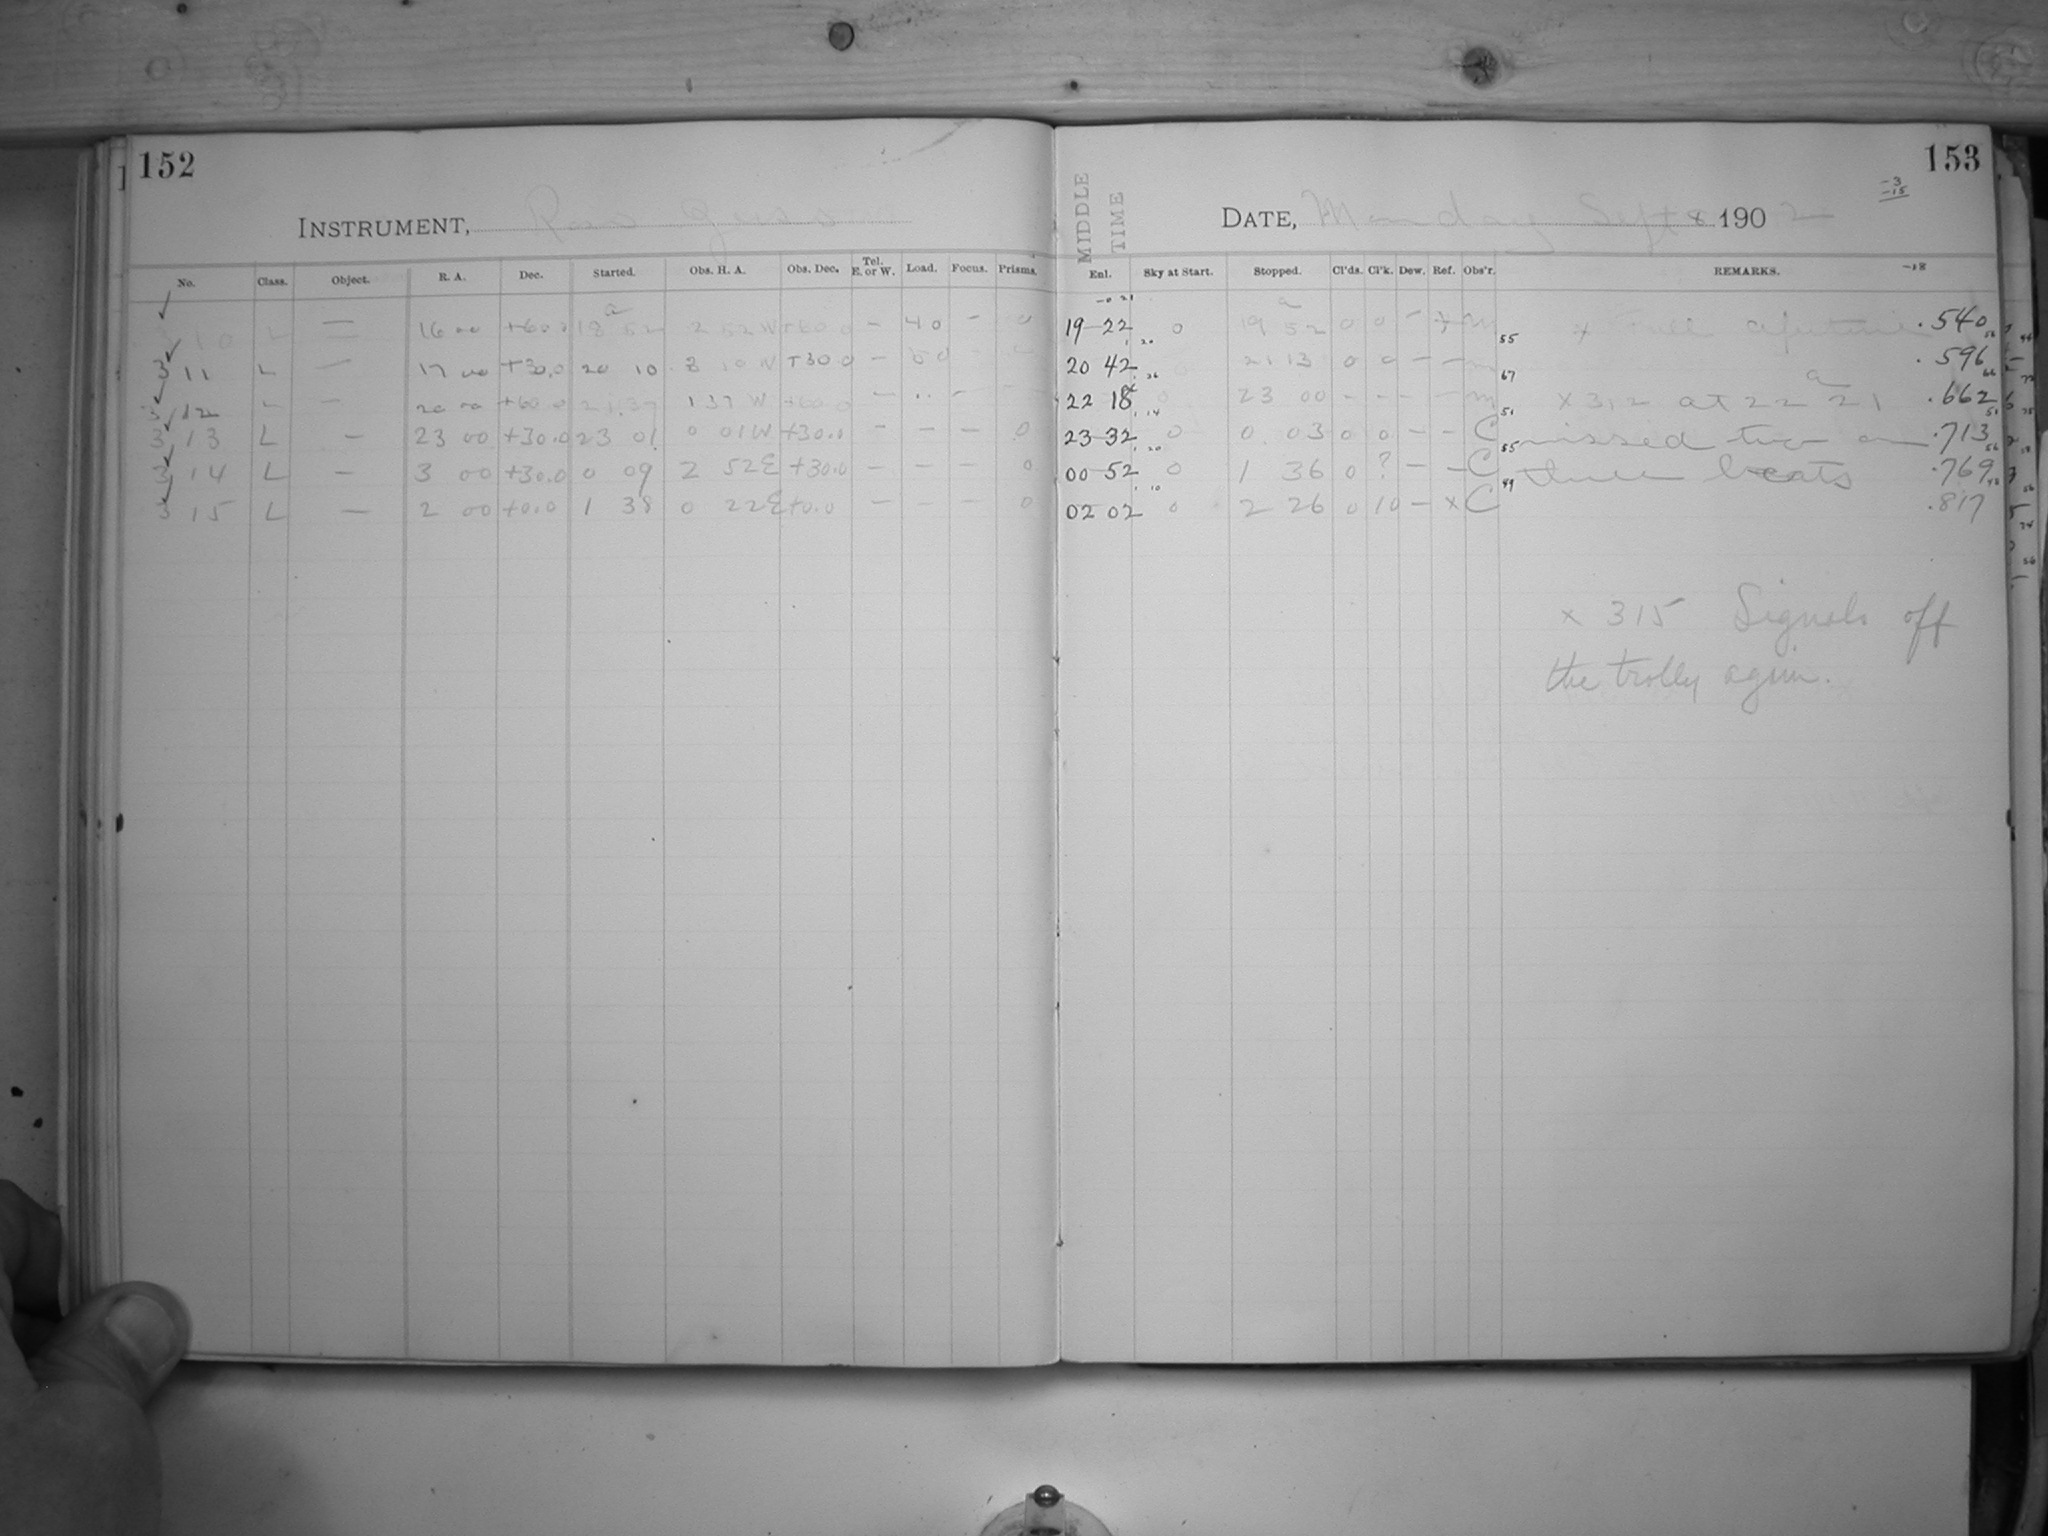 152
INSTRUMENT, Ross
No. Class. Object. R. A. Dec. Started. Obs. H. A. Obs. Dec. Tel. E. or W. Load. Focus. Prisms.
10 L — 16 00 +60.0 18 52 2 52 W +60 0 — 40 — 0
11 L — 17 00 +30.0 20 10 3 10 W +30 0 —
12 L — 20 00 +60.0 21 37 1 37 W +60 0 —
313 L — 23 00 +30.0 23 01 0 01 W +30.0 — — — 0
314 L — 3 00 +30.0 0 09 2 52 E +30.0 — — — 0
315 L — 2 00 +0.0 1 38 0 22 E +0.0 — — — 0
153
-3
-15
-18
MIDDLE TIME
DATE, Monday Sept 8 1902
Enl. Sky at Start. Stopped. Cl'ds. Cl'k. Dew. Ref. Obs'r. REMARKS.
19 22 0 19 52 0 0 — m 55 x Full aperture .540
20 42 21 13 0 0 — — m 67 .596
22 18 23 00 — — — — m 51 x 312 at 22 21 .662
23 32 0 0 03 0 0 — — C 55 missed two or .713
00 52 0 1 36 0 ? — — C 49 three beats .769
02 02 0 2 26 0 10 — x C .817
x 315 Signals off
the trolly again.